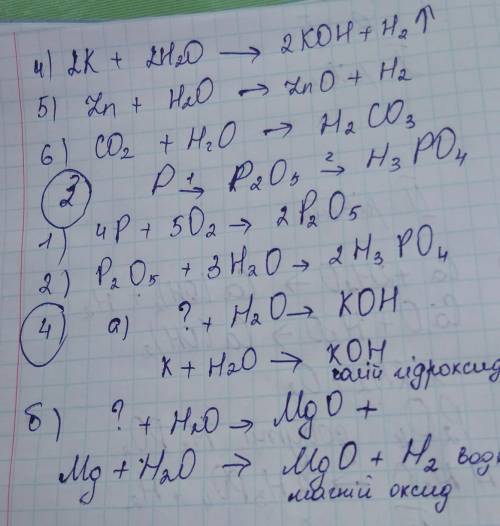 4) 2K + 2H2O → 2KOH + H2↑
5) Zn + H2O → ZnO + H2
6) CO2 + H2O → H2CO3
3 P 1→ P2O5 2→ H3PO4
1) 4P + 5O2 → 2P2O5
2) P2O5 + 3H2O → 2H3PO4
4 а) ? + H2O → KOH
K + H2O → KOH
калій гідроксид
б) ? + H2O → MgO +
Mg + H2O → MgO + H2
магній оксид